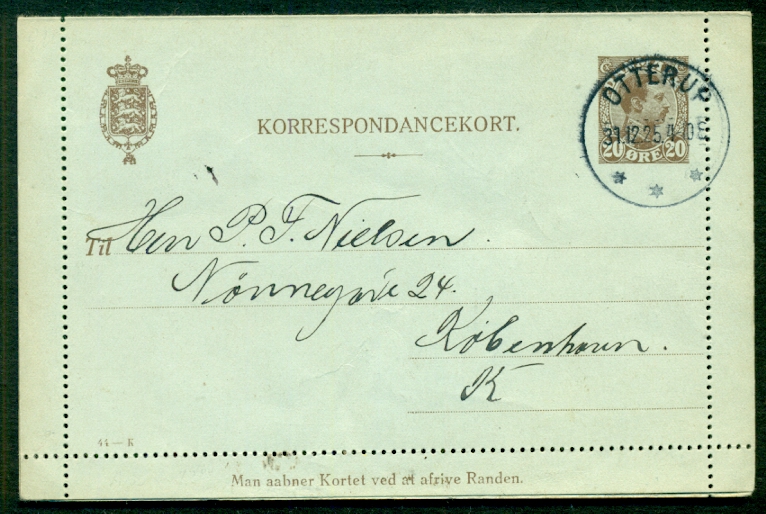 KORRESPONDANCEKORT.
OTTERUP
31.12.25.
20 ØRE 20
Til Herr P. F. Nielsen.
Nørregade 24.
København.
K
44 — K
Man aabner Kortet ved at afrive Randen.